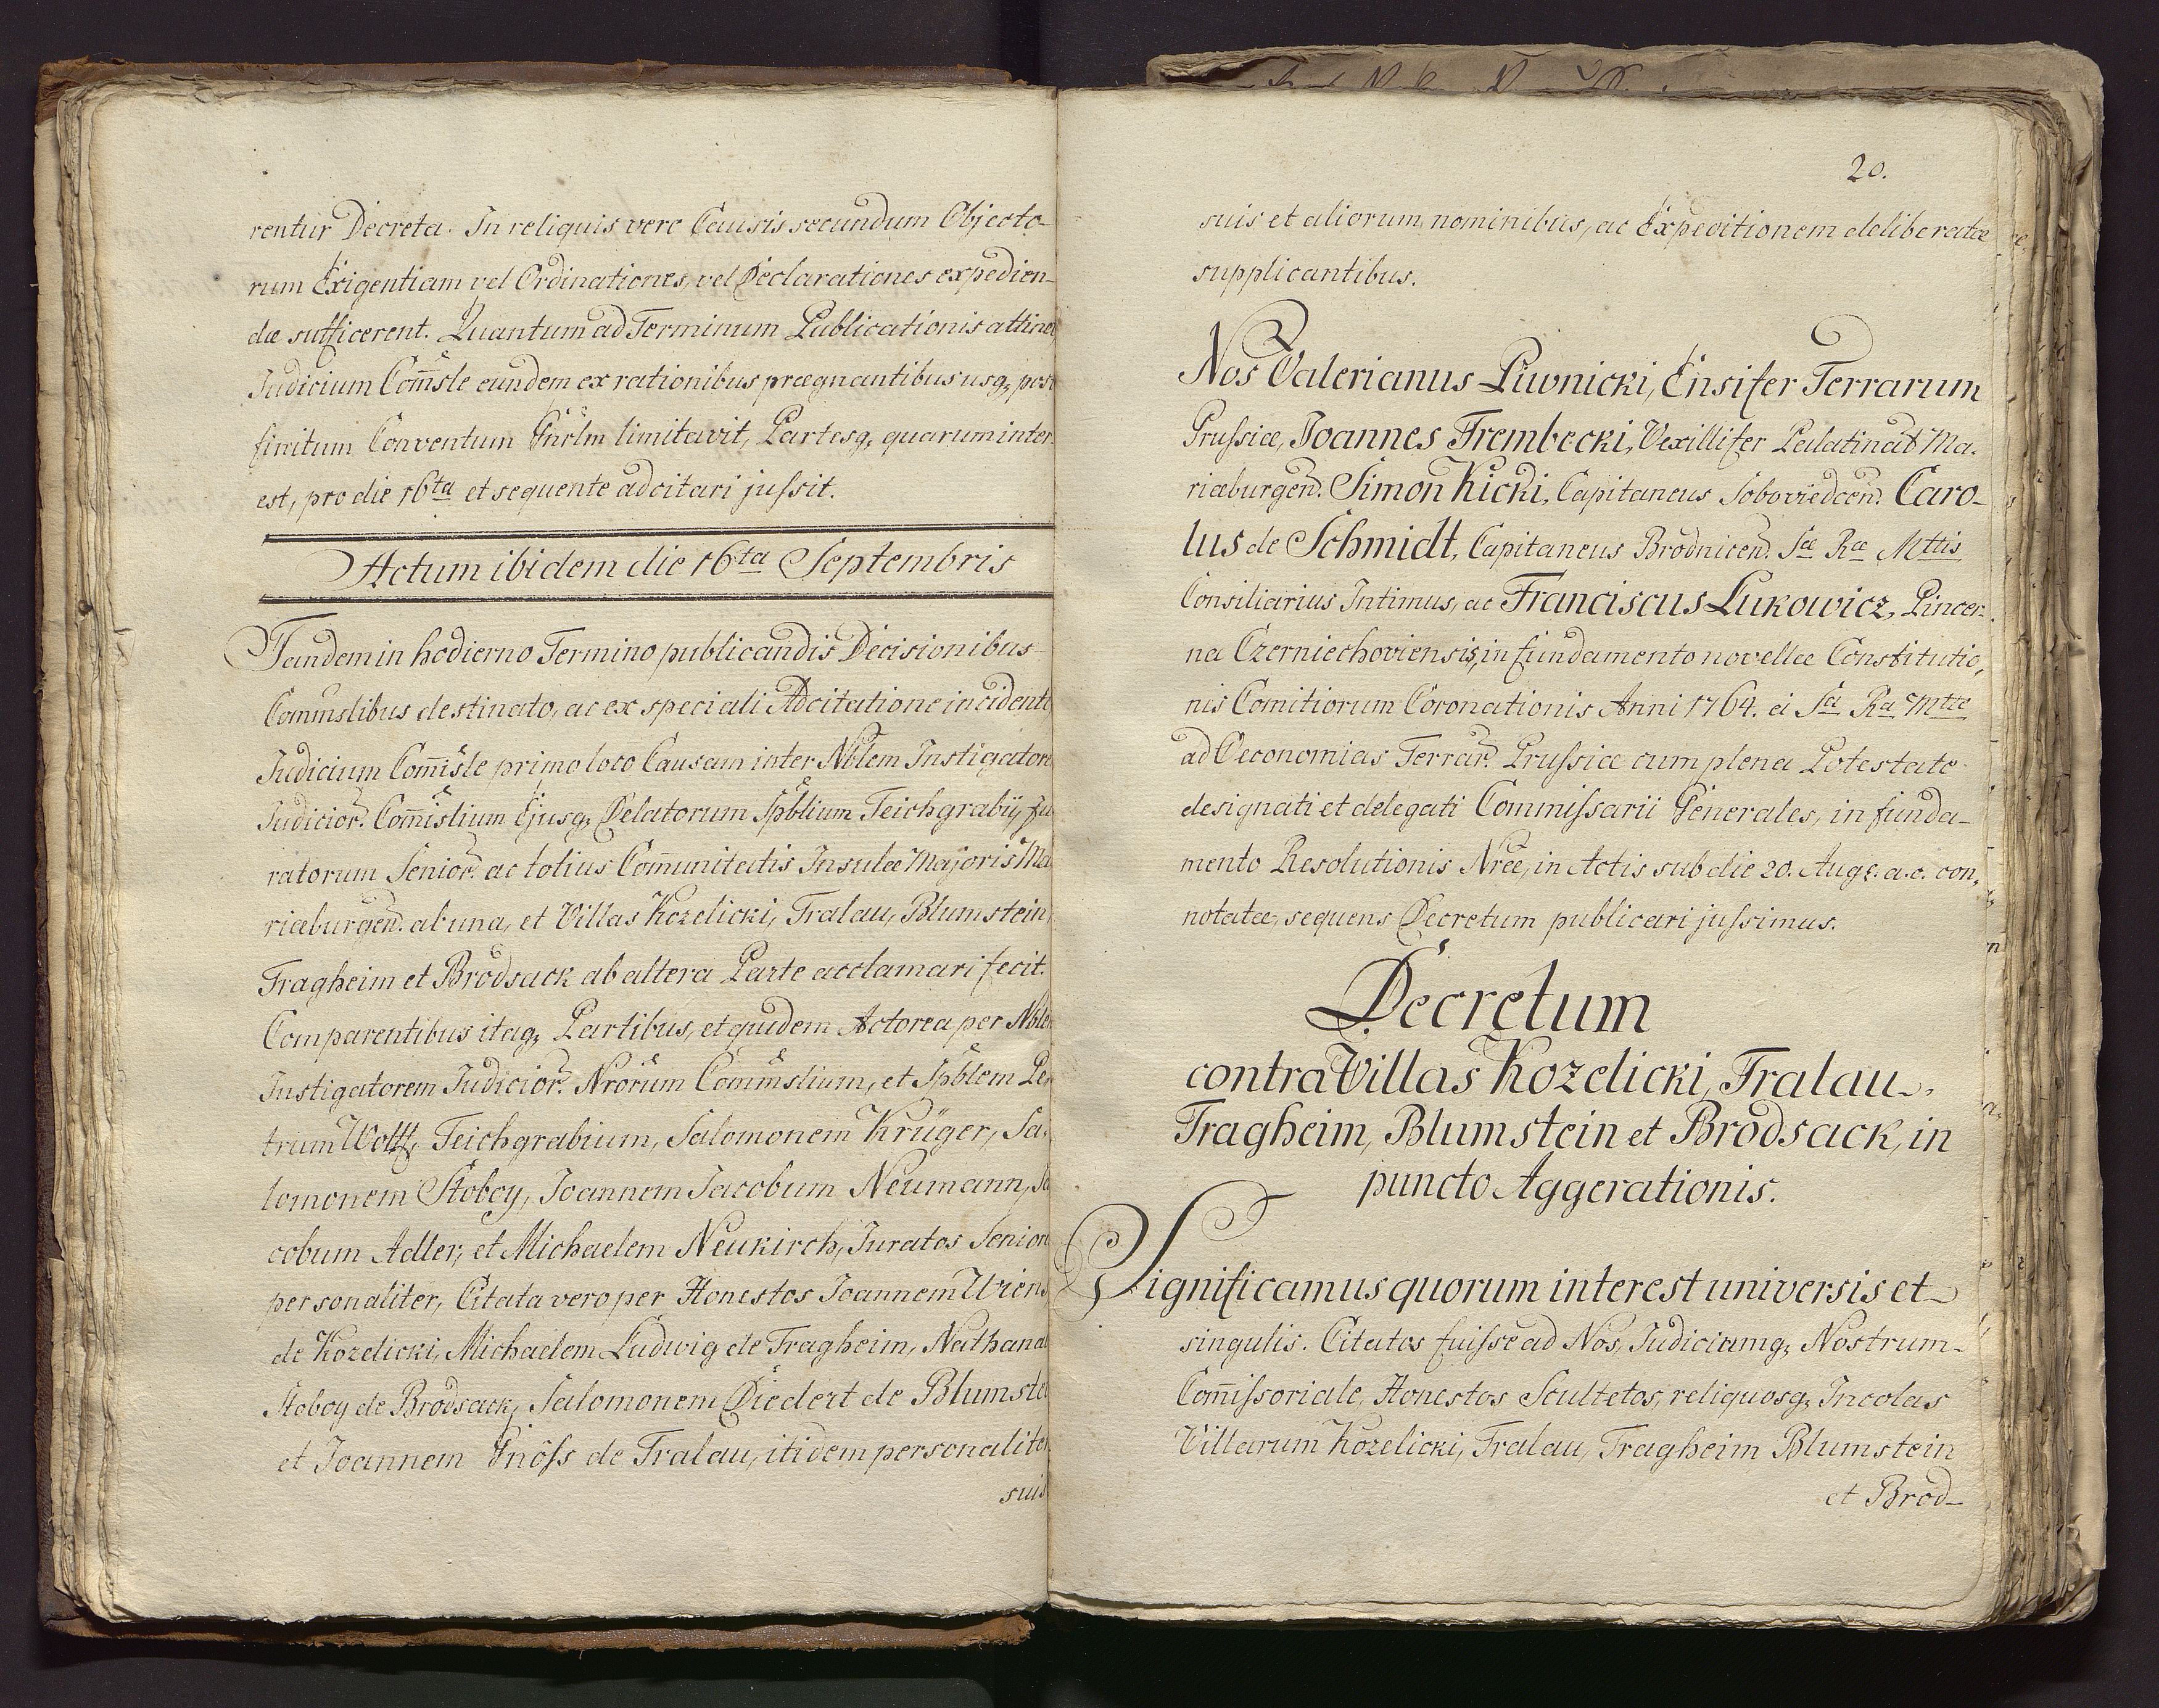 rentur Decreta. In reliquis vero Causis secundum Objecto-
rum Exigentiam vel Ordinationes, vel Declarationes expedien-
dæ sufficerent. Quantum ad Terminum Publicationis attinet
Judicium Com̄sle eundem ex rationibus prægnantibus usq, post
finitum Conventum Gnrlm limitavit, Partesq, quarum inter-
est, pro die 16ta et sequente adcitari jussit.
Actum ibidem die 16ta Septembris
Tandem in hodierno Termino publicandis Decisionibus
Commslibus destinato, ac ex speciali Adcitatione incidente
Judicium Com̄isle primo loco Causam inter Nblem Instigatore
Judicior. Com̄islium Ejusq, Delatorum Spblium Teichgrabij, Ju
ratorum Senior. ac totius Com̄unitatis Insulæ Majoris Ma
riæburgen. ab una, et Villas Kozelicki, Tralau, Blumstein,
Tragheim et Brodsack ab altera Parte acclamari fecit.
Comparentibus itaq, Partibus, et quidem Actorea per Nble
Instigatorem Judicior. Nrorum Commslium, et Spblem Pe
trum Wolff, Teichgrabium, Salomonem Krüger, Sa-
lomonem Stoboy, Joannem Jacobum Neumann, Ja
cobum Adler, et Michaelem Neukirch, Juratos Senior
personaliter, Citata vero per Honestos Joannem Wiens
de Kozelicki, Michaelem Ludwig de Tragheim, Nathanae
Stoboy de Brodsack, Salomonem Diedert de Blumste
et Joannem Gnöss de Tralau, itidem personaliter
suis
20.
suis et aliorum nominibus, ac Expeditionem deliberatæ
supplicantibus.
Nos Valerianus Piwnicki, Ensifer Terrarum
Prussiæ, Joannes Trembecki, Vexillifer Palatinat Ma-
riæburgen. Simon Kicki, Capitaneus Soboviedcen. Caro-
lus de Schmidt, Capitaneus Brodnicen. Sæ Ræ Mttis
Consiliarius Intimus, ac Franciscus Lukowicz, Pincer-
na Czerniechoviensis, in fundamento novellæ Constitutio-
nis Comitiorum Coronationis Anni 1764. a Sa Ra Mtte
ad Oeconomias Terrar. Prussiæ cum plena Potestate
designati et delegati Commissarii Generales, in funda-
mento Resolutionis Nræ, in Actis sub die 20. Aug. a.c. con-
notatæ, sequens Decretum publicari jussimus.
Decretum
contra Villas Kozelicki, Tralau,
Tragheim, Blumstein et Brodsack, in
puncto Aggerationis.
Significamus quorum interest universis et
singulis. Citatos fuisse ad Nos, Judiciumq, Nostrum
Com̄issoriale, Honestos Scultetos, reliquosq, Incolas
Villarum Kozelicki, Tralau, Tragheim Blumstein
et Brod-